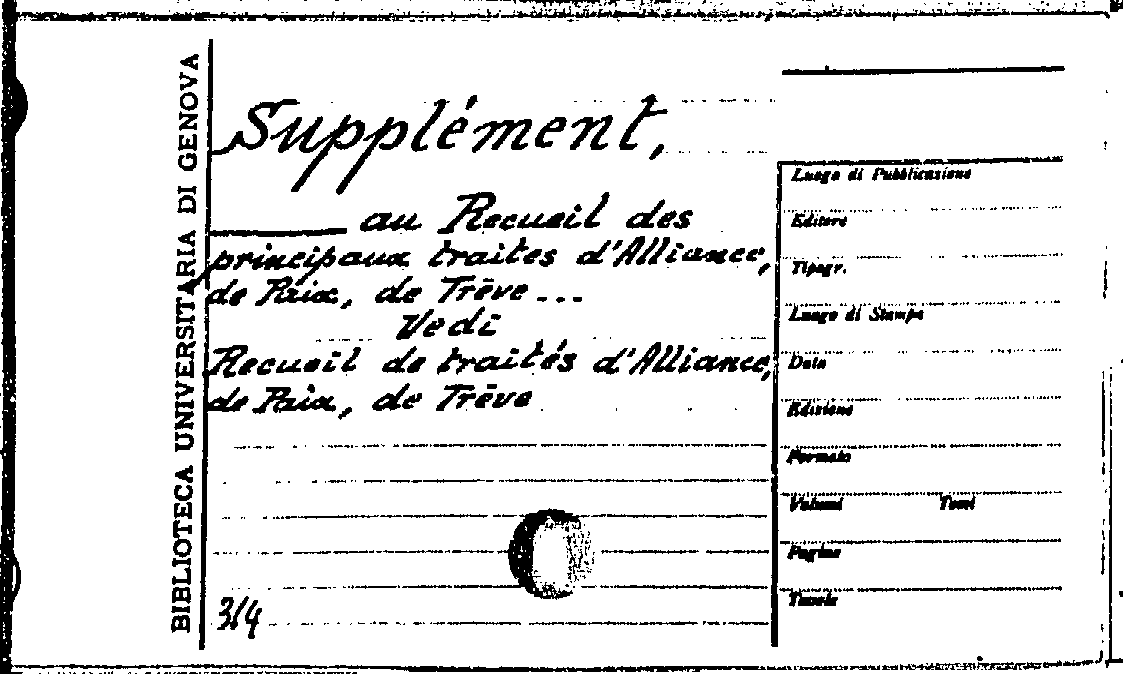 BIBLIOTECA UNIVERSITARIA DI GENOVA
Supplément,
au Recueil des
principaux traites d'Alliance,
de Paix, de Trêve...
Vedi
Recueil de traités d'Alliance,
de Paix, de Trêve
314
Luogo di Pubblicazione
Editore
Tipogr.
Luogo di Stampa
Data
Edizione
Formato
Volumi Tomi
Pagine
Tavole